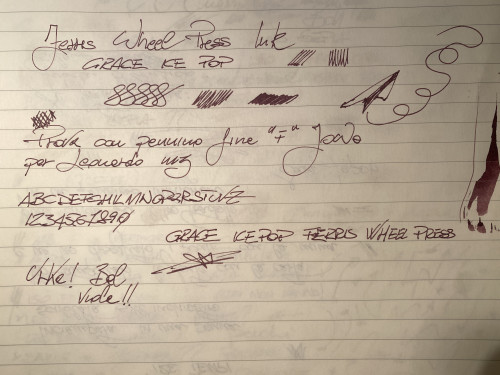 Ferris Wheel Press Ink
GRACE ICE POP
Prova con pennino fine "F" JoWo
per Leonardo mz
ABCDEFGHILMNOPQRSTUVZ
1234567890
GRACE ICE POP FERRIS WHEEL PRESS
Urka! Bel
viola!!